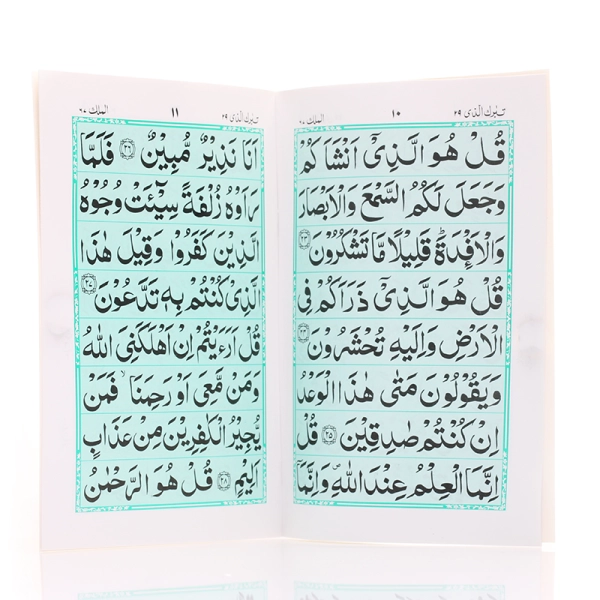 تبٰرك الذی ٢٩
١٠
الملك ٦٧
قُلْ هُوَ الَّذِیْٓ اَنْشَاَكُمْ
وَجَعَلَ لَكُمُ السَّمْعَ وَالْاَبْصَارَ
وَالْاَفْـِٕدَةَ ؕ قَلِیْلًا مَّا تَشْكُرُوْنَ ﴿٢٣﴾
قُلْ هُوَ الَّذِیْ ذَرَاَكُمْ فِی
الْاَرْضِ وَاِلَیْهِ تُحْشَرُوْنَ ﴿٢٤﴾
وَیَقُوْلُوْنَ مَتٰی هٰذَا الْوَعْدُ
اِنْ كُنْتُمْ صٰدِقِیْنَ ﴿٢٥﴾ قُلْ
اِنَّمَا الْعِلْمُ عِنْدَ اللّٰهِ ۪ وَاِنَّمَاۤ
تبٰرك الذی ٢٩
١١
الملك ٦٧
اَنَا نَذِیْرٌ مُّبِیْنٌ ﴿٢٦﴾ فَلَمَّا
رَاَوْهُ زُلْفَةً سِیْٓـَٔتْ وُجُوْهُ
الَّذِیْنَ كَفَرُوْا وَقِیْلَ هٰذَا
الَّذِیْ كُنْتُمْ بِهٖ تَدَّعُوْنَ ﴿٢٧﴾
قُلْ اَرَءَیْتُمْ اِنْ اَهْلَكَنِیَ اللّٰهُ
وَمَنْ مَّعِیَ اَوْ رَحِمَنَا ۙ فَمَنْ
یُّجِیْرُ الْكٰفِرِیْنَ مِنْ عَذَابٍ
اَلِیْمٍ ﴿٢٨﴾ قُلْ هُوَ الرَّحْمٰنُ